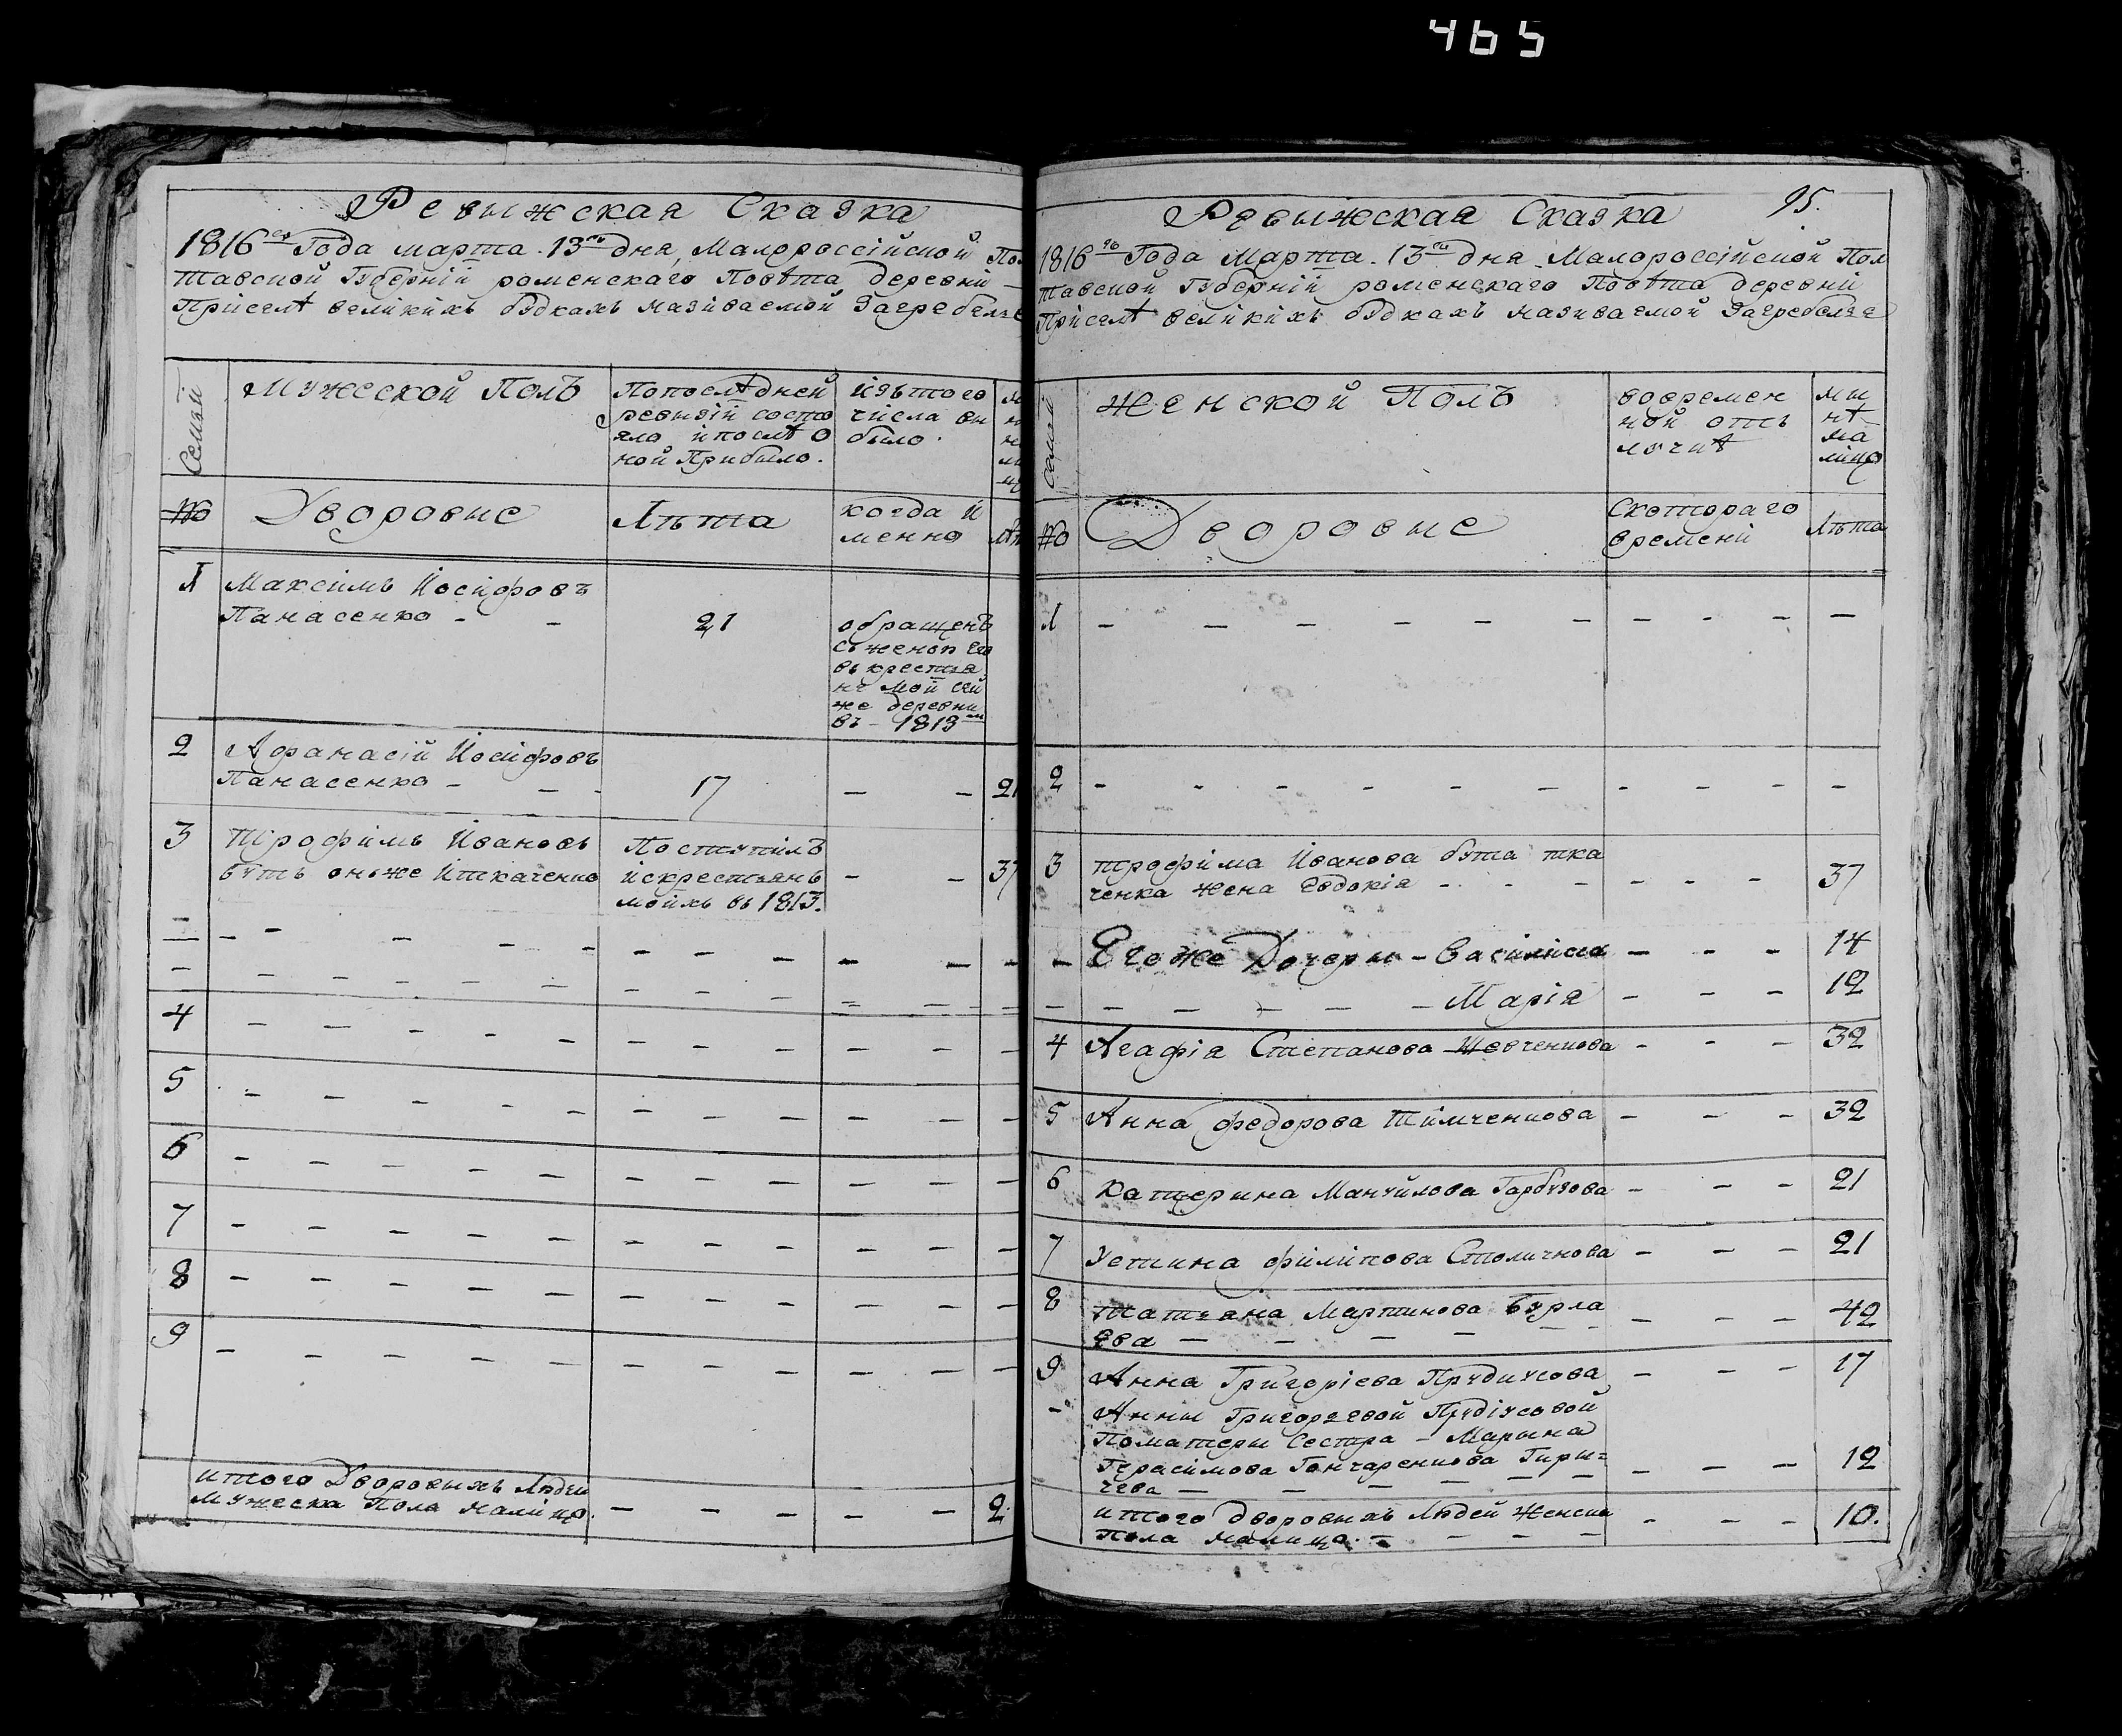 465
Ревыжская Сказка
1816го Года марта. 13го дня, Малороссійской Пол
тавской Губерніи роменскаго Повѣта деревни
Присѣлѣ великихъ будкахъ називаемой Загребелье
Семьи
Мужеской Полъ
Попослѣдней
ревизіи состо
яло ипослѣ о
ной Прибыло.
изътого
числа вы
было.
№
Дворовые
Лѣта
когда и
менно
1
Максимъ Иосифовъ
Панасенко - -
21
обращенъ
съ женою его
въ крестья
не мои сей
же деревни
въ - 1813м
2
Афанасій Иосифовъ
Панасенко - - -
17
- -
21
3
Трофимъ Ивановъ
Бутъ онъже Иткаченко
Поступилъ
искрестьянъ
моихъ въ 1813.
- -
37
4
5
6
7
8
9
итого Дворовыхъ Людей
Мужеска Пола налицо.
- - - - -
2.
95.
Ревыжская Сказка
1816го Года Марта. 13го дня. Малороссійской Пол
тавской Губерніи роменскаго Повѣта деревни
Присѣлѣ великихъ будкахъ називаемой Загребелье
Семьи
женской Полъ
вовремен
ной отъ
лучкѣ
ны
нѣ
на
лицо
№
Дворовые
Скотораго
времени
Лѣта
1
2
3
трофима Иванова бута тка
ченка жена Евдокія - - - - - -
37
Егоже Дочеры - Василиса - - -
14
- - - - - - Марія - - -
12
4
Агафія Степанова Шевченкова - - -
32
5
Анна федорова Тимченкова - - -
32
6
Катерина Мануйлова Гарбузова - - -
21
7
Устина филипова Столичнова - - -
21
8
Татьяна Мартинова Бурла
ева - - - -
42
9
Анна Григоріева Прудиусова - - -
17
Анны Григорьевой Прудіусовой
Поматери Сестра - Марына
Герасимова Гончаренкова Гири=
чева - - - - - -
12
итого дворовыхъ Людей Женска
Пола налицо. - - - -
10.